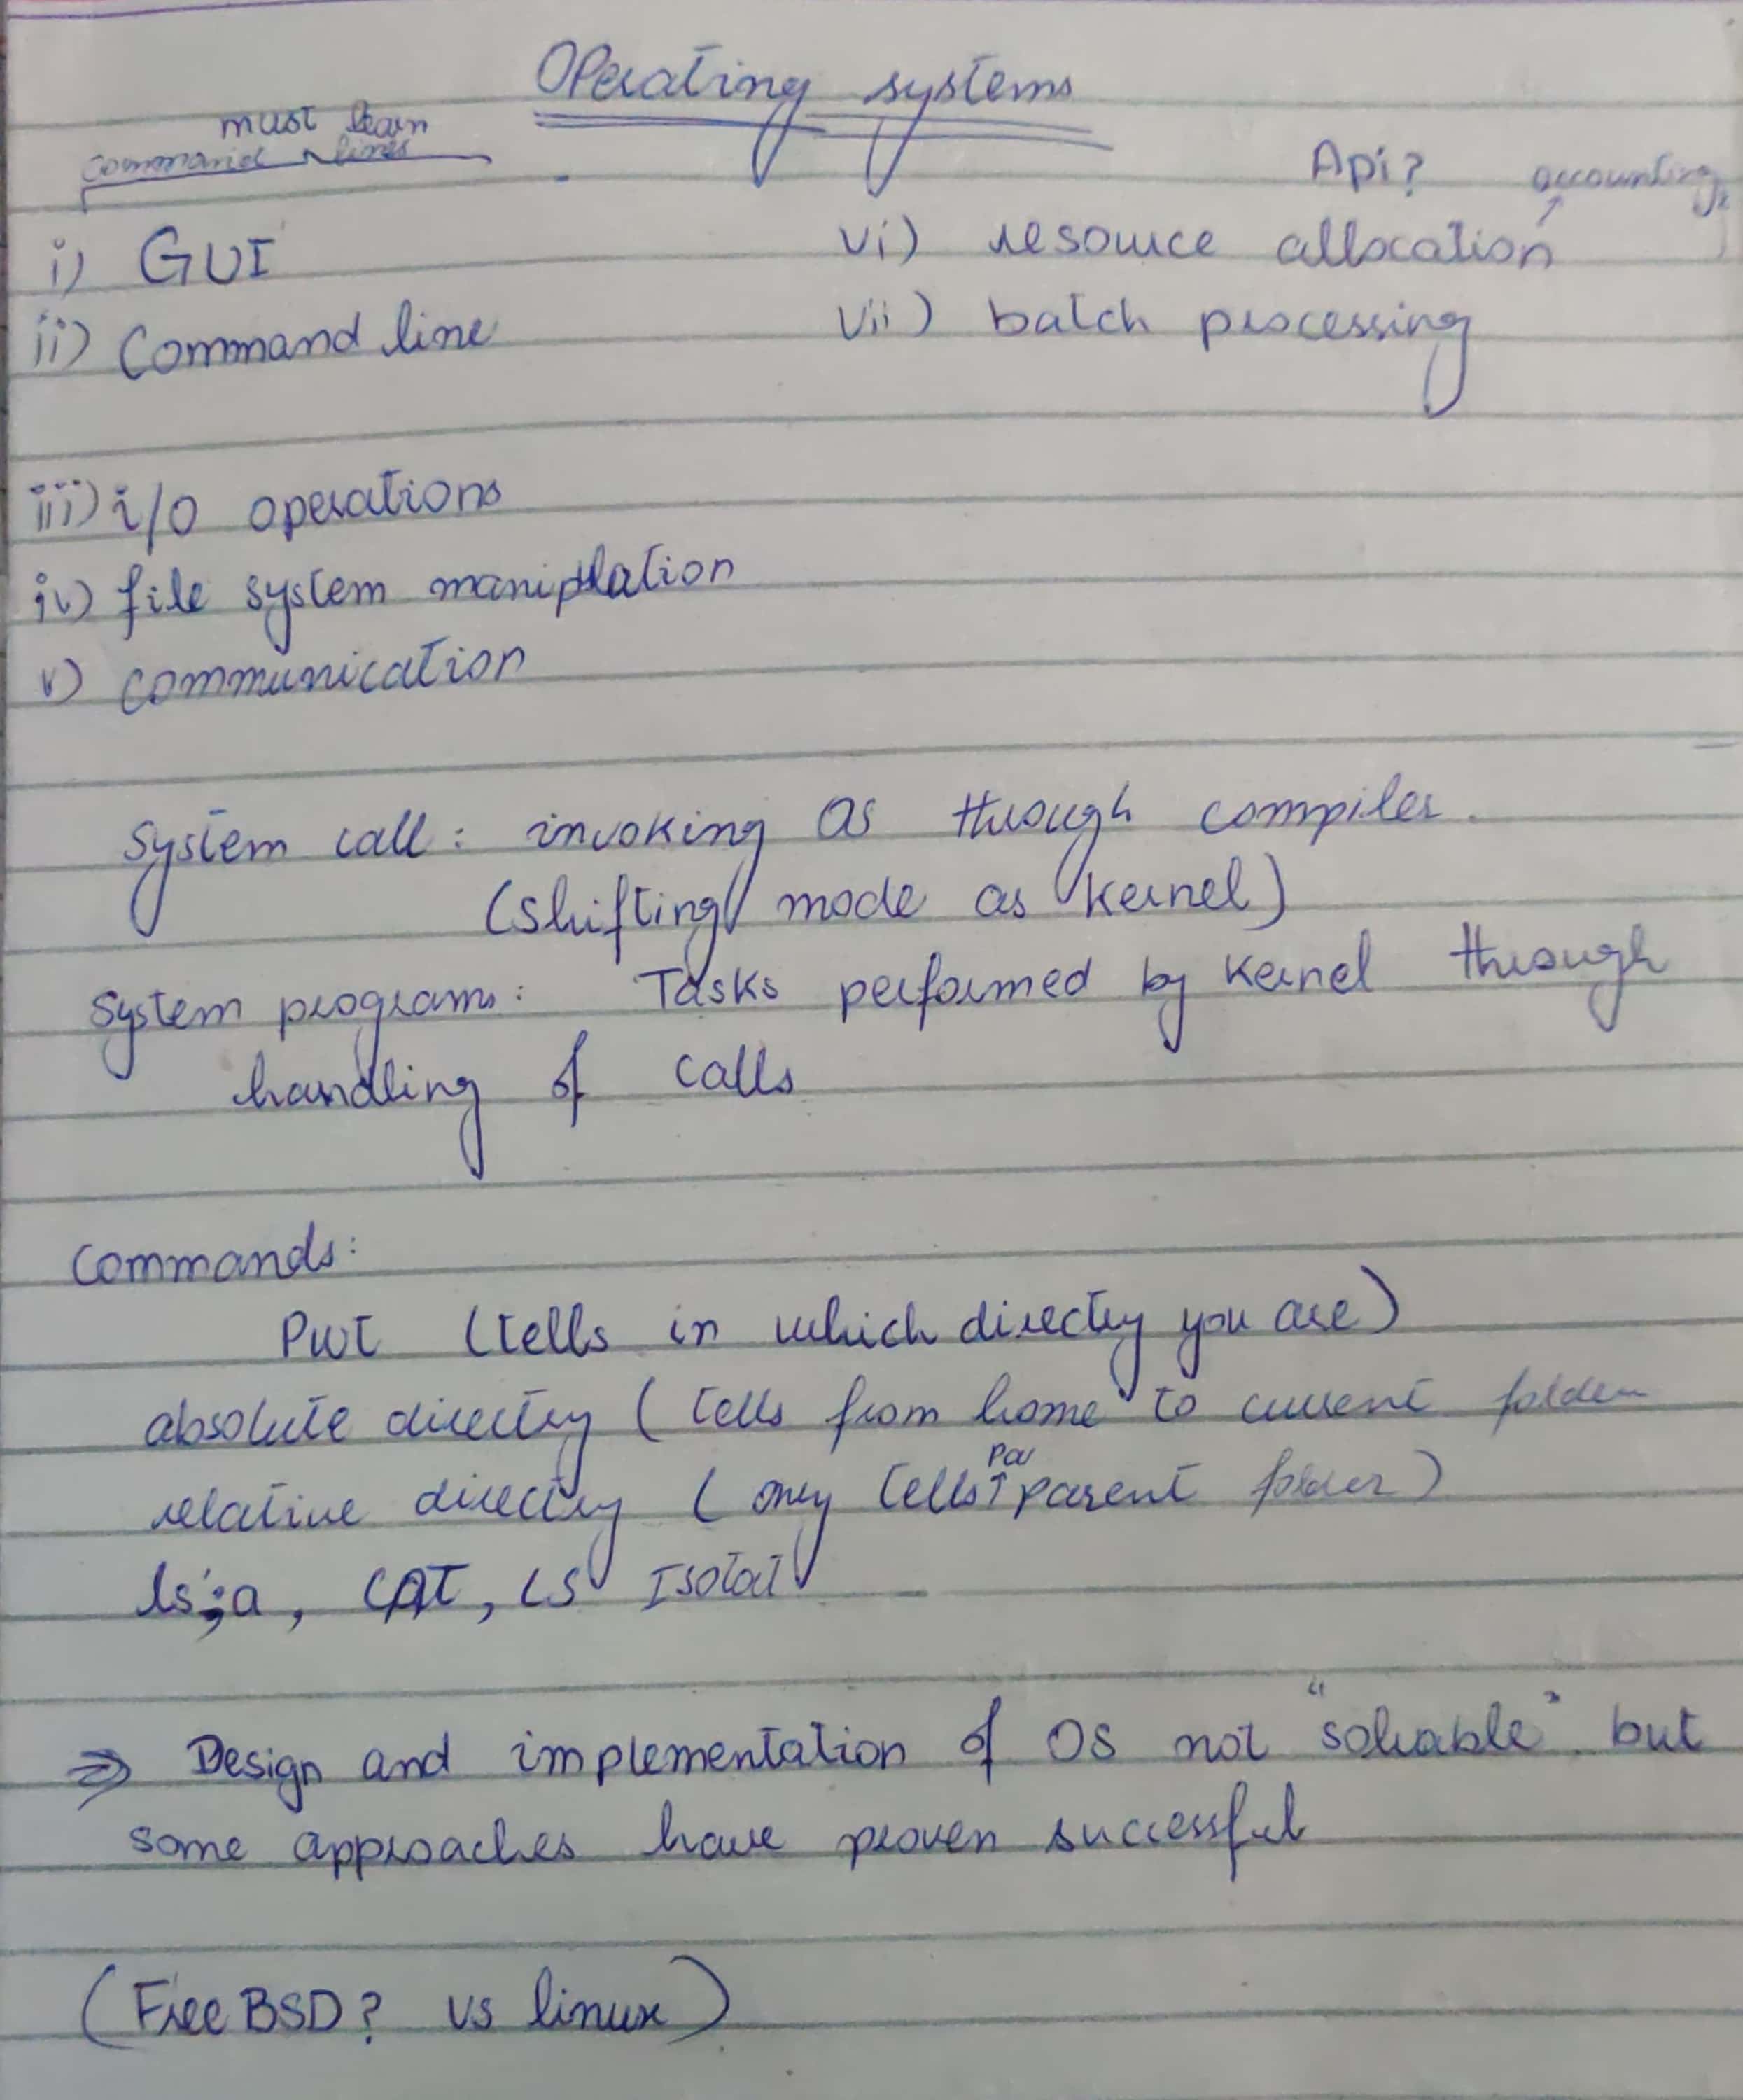 Operating systems
must learn
command lines
Api?
accounting
i) GUI
vi) resource allocation
ii) Command line
vii) batch processing
iii) i/o operations
iv) file system maniplation
v) communication
System call: invoking OS through compiler.
(shifting mode as kernel)
System programs: Tasks performed by kernel through
handling of calls
Commands:
Pwt (tells in which directry you are)
absolute directry ( tells from home to current folder
Par
relative directry ( only tells parent folder)
ls;a, CAT, LS
⇒ Design and implementation of OS not "solvable" but
some approaches have proven successful
(Free BSD? vs linux)